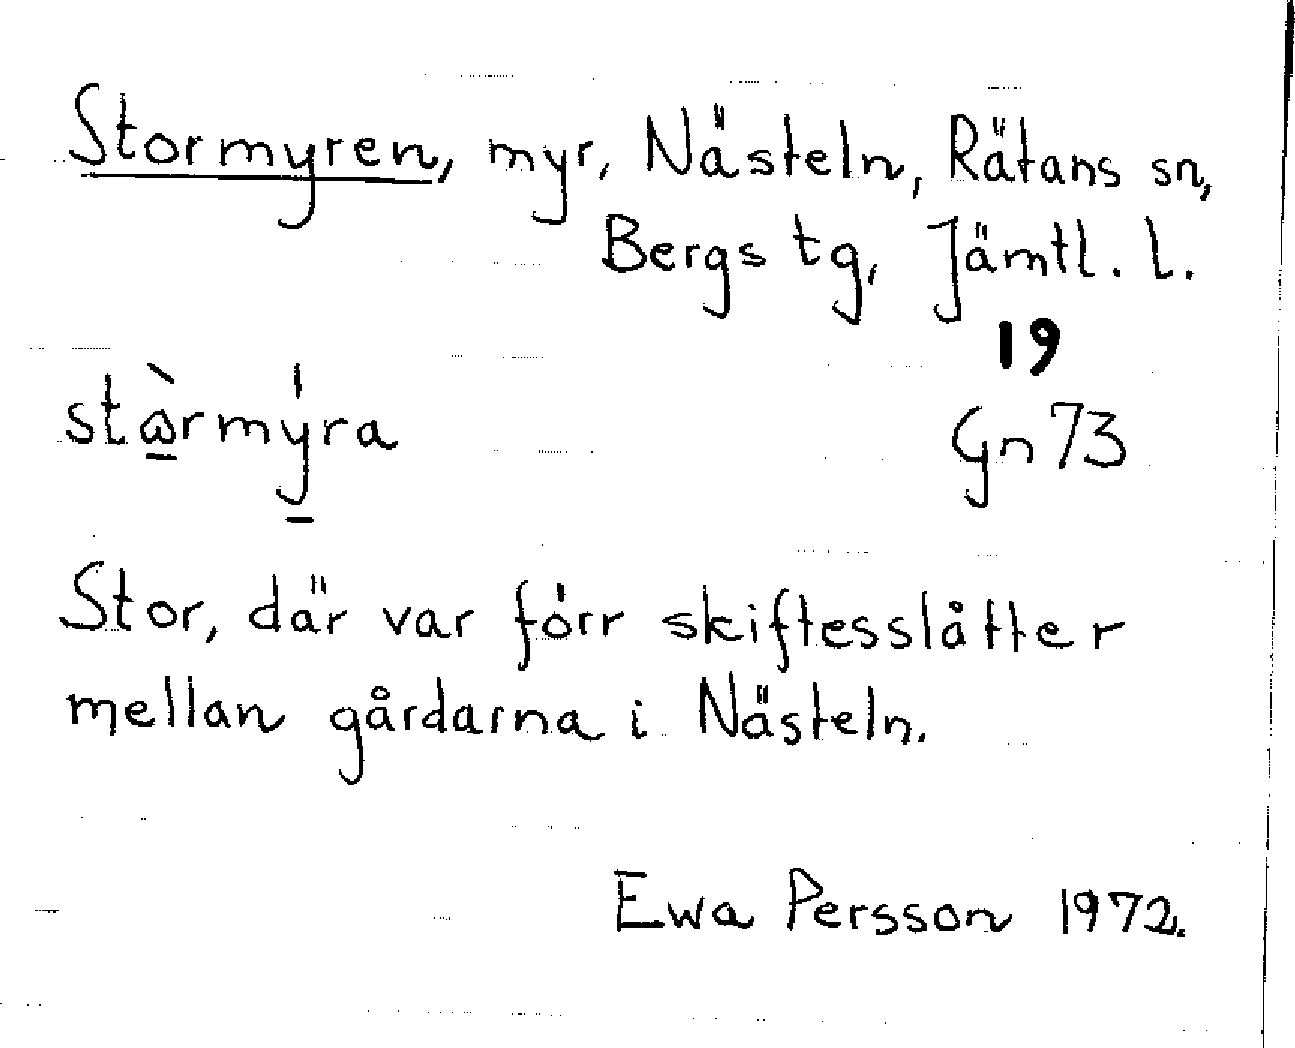 Stormyren, myr, Nästeln, Rätans sn,
Bergs tg, Jämtl. l.
19
stɷ̠̀rmý̠ra
Gn 73
Stor, där var förr skiftesslåtter
mellan gårdarna i Nästeln.
Ewa Persson 1972.